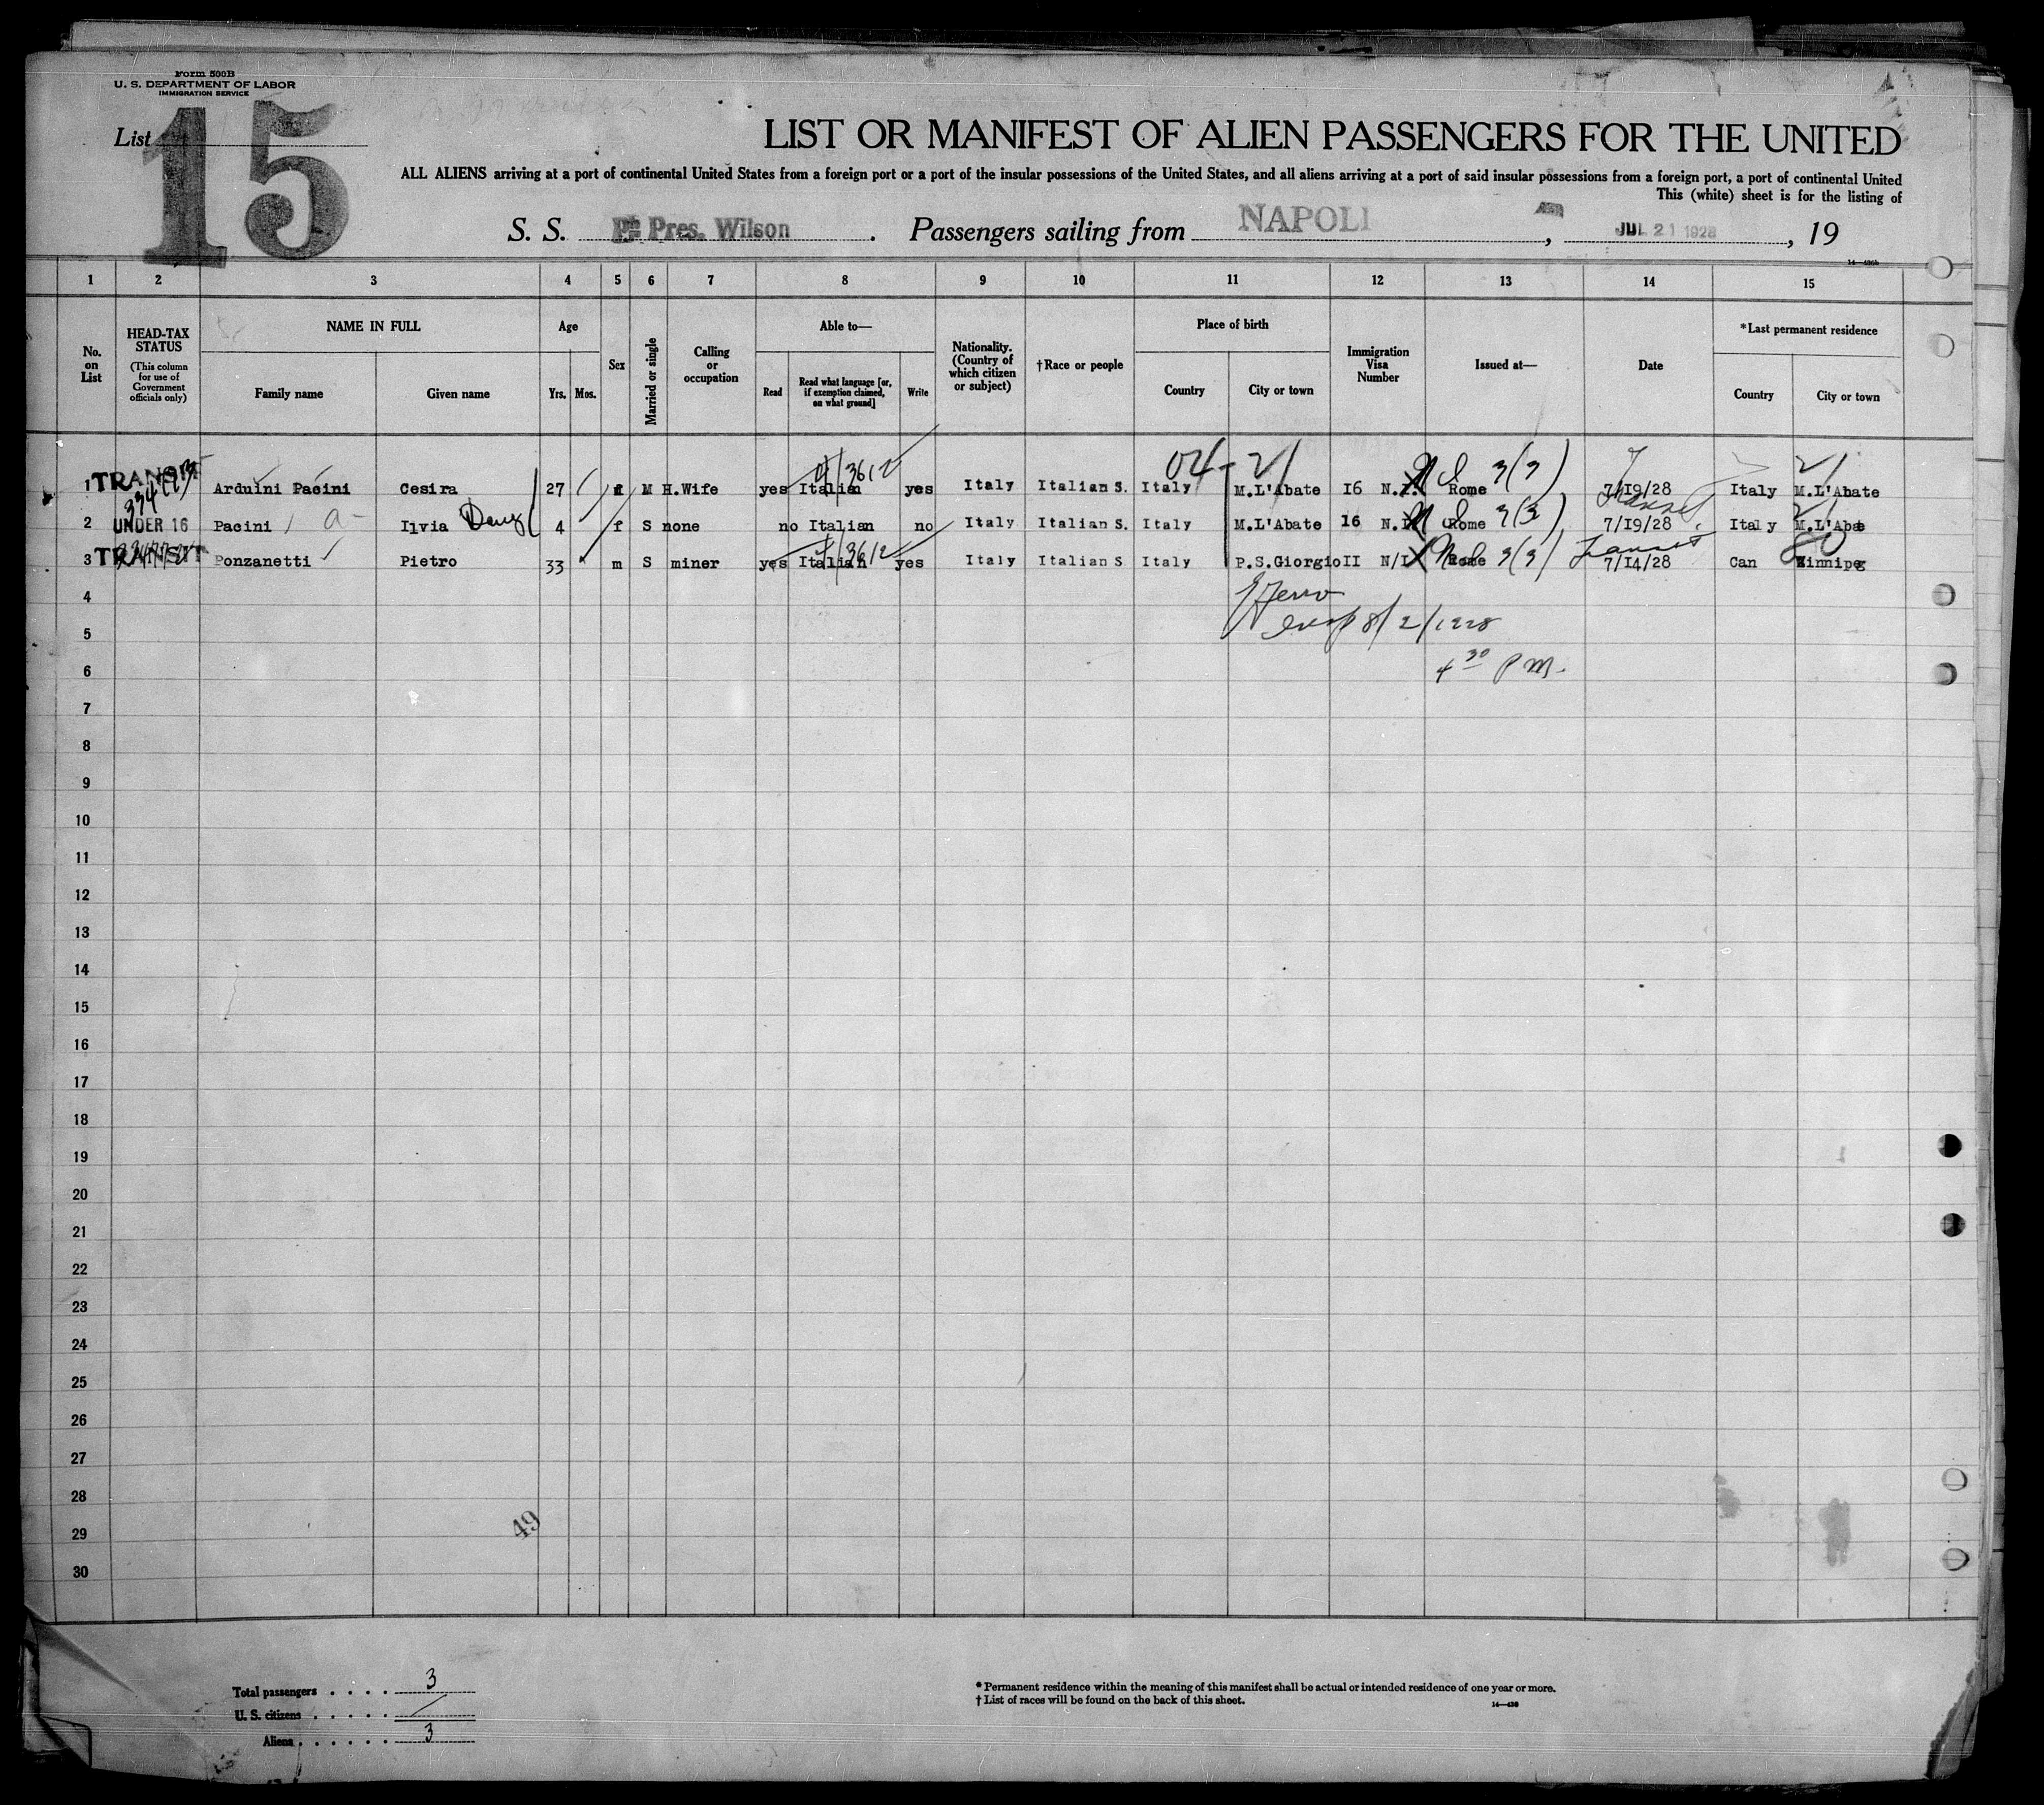 Form 500B
U. S. DEPARTMENT OF LABOR
IMMIGRATION SERVICE
List 15
LIST OR MANIFEST OF ALIEN PASSENGERS FOR THE UNITED
ALL ALIENS arriving at a port of continental United States from a foreign port or a port of the insular possessions of the United States, and all aliens arriving at a port of said insular possessions from a foreign port, a port of continental United
This (white) sheet is for the listing of
S. S. Pres. Wilson. Passengers sailing from NAPOLI, JUL 21 1928, 19
1 2 3 4 5 6 7 8 9 10 11 12 13 14 15
No. on List
HEAD-TAX STATUS
(This column for use of Government officials only)
NAME IN FULL
Family name
Given name
Age
Yrs. Mos.
Sex
Married or single
Calling or occupation
Able to—
Read
Read what language [or, if exemption claimed, on what ground]
Write
Nationality. (Country of which citizen or subject)
†Race or people
Place of birth
Country
City or town
Immigration Visa Number
Issued at—
Date
*Last permanent residence
Country
City or town
04-21 3(3) 21
1 TRANSIT Arduini Pacini Cesira 27 f M H.Wife yes Italian yes Italy Italian S. Italy M.L'Abate 16 Rome 7/19/28 Italy M.L'Abate
2 UNDER 16 Pacini Ilvia 4 f S none no Italian no Italy Italian S. Italy M.L'Abate 16 Rome 3(3) 7/19/28 Italy
3 TRANSIT Ponzanetti Pietro 33 m S miner yes Italian yes Italy Italian S Italy P.S.Giorgio II N/I Rome 3(3) Transit 7/14/28 Can Winnipeg
4
5 8/2/1928
6 4 30 PM.
7
8
9
10
11
12
13
14
15
16
17
18
19
20
21
22
23
24
25
26
27
28
29 49
30
Total passengers . . . . 3
U. S. citizens . . . . . /
Aliens . . . . . . 3
* Permanent residence within the meaning of this manifest shall be actual or intended residence of one year or more.
† List of races will be found on the back of this sheet.